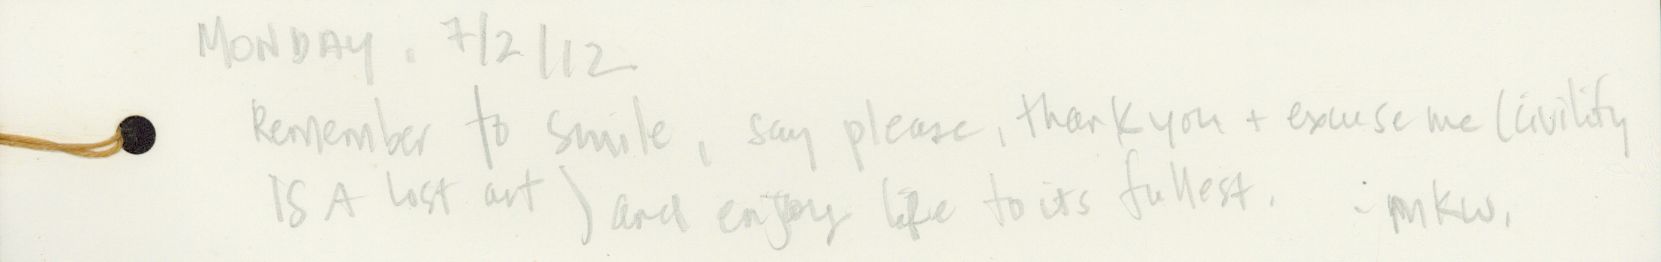 MONDAY. 7/2/12
Remember to smile, say please, thank you + excuse me (civility
IS A lost art) and enjoy life to its fullest. - mkw.